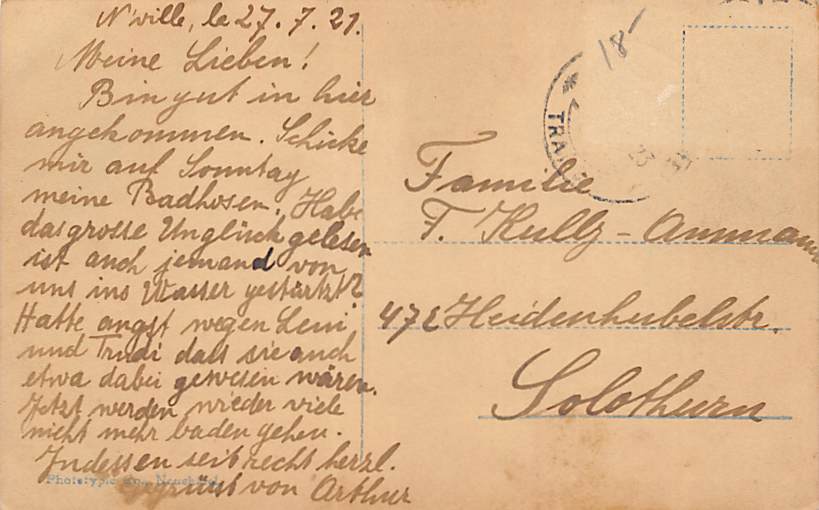 N'ville, le 27. 7. 21.
Meine Lieben!
Bin gut in hier
angekommen. Schicke
mir auf Sonntag
meine Badhosen. Habe
das grosse Unglück gelesen
ist auch jemand von
uns ins Wasser gestürtzt?
Hatte angst wegen Leni
und Trudi dass sie auch
etwa dabei gewesen wären.
Jetzt werden wieder viele
nicht mehr baden gehen.
Indessen seit recht herzl.
gegrüsst von Arthur
Phototypie Neuchâtel
18-
TRA
Familie
F. Kully-Ammann
472 Heidenhubelstr.
Solothurn